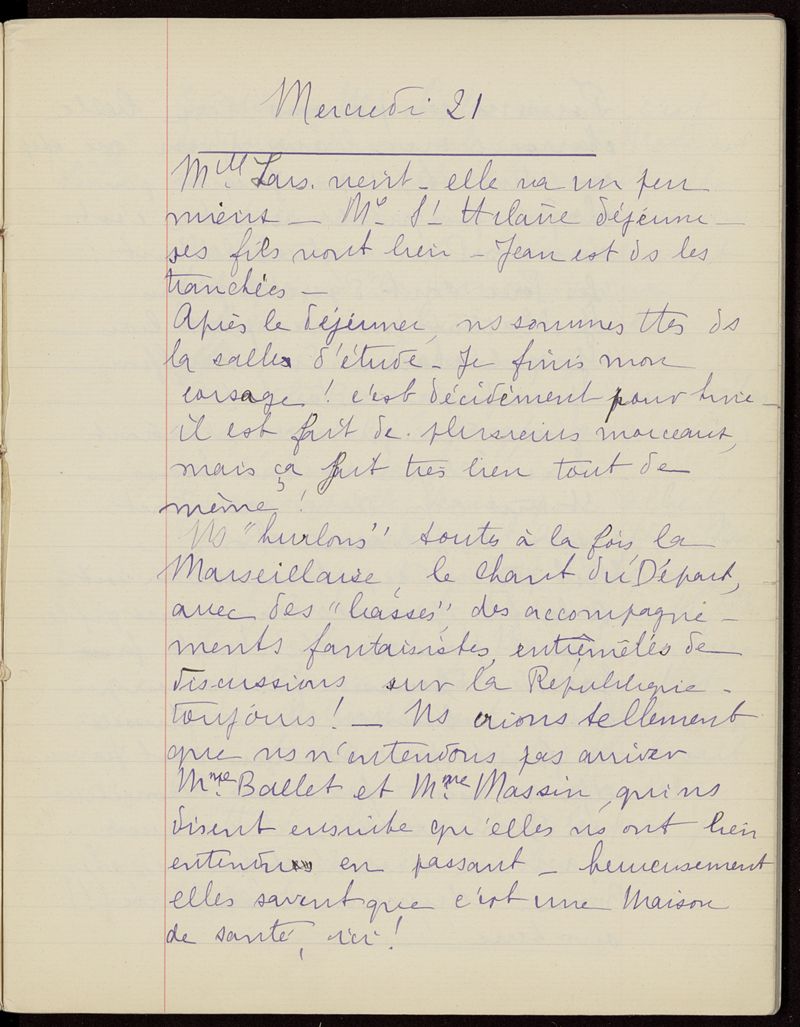 Mercredi 21
Mlle Lars. vient - elle va un peu
mieux - Me St Hilaire déjeune -
ses fils vont bien - Jean est ds les
tranchées -
Après le déjeuner, ns sommes ttes ds
la salle d'étude - Je finis mon
corsage ! c'est décidément pour
il est fait de plusieurs morceaux,
mais ça fait très bien tout de
même !
Ns "hurlons" toutes à la fois, la
Marseillaise, le Chant du Départ,
avec des "basses", des accompagne-
ments fantaisistes, entremêlés de
discussions sur la République -
toujours ! - Ns crions tellement
que ns n'entendons pas arriver
Mme Ballet et Mme Massin, qui ns
disent ensuite qu'elles ns ont bien
entendues en passant - heureusement
elles savent que c'est une Maison
de santé, ici !